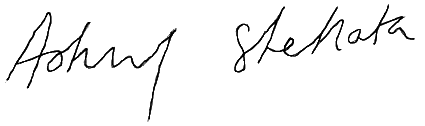 Ashraf Shehata